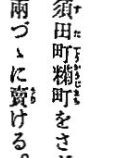 須田町糶町をさそ
兩づゝに賣ける。